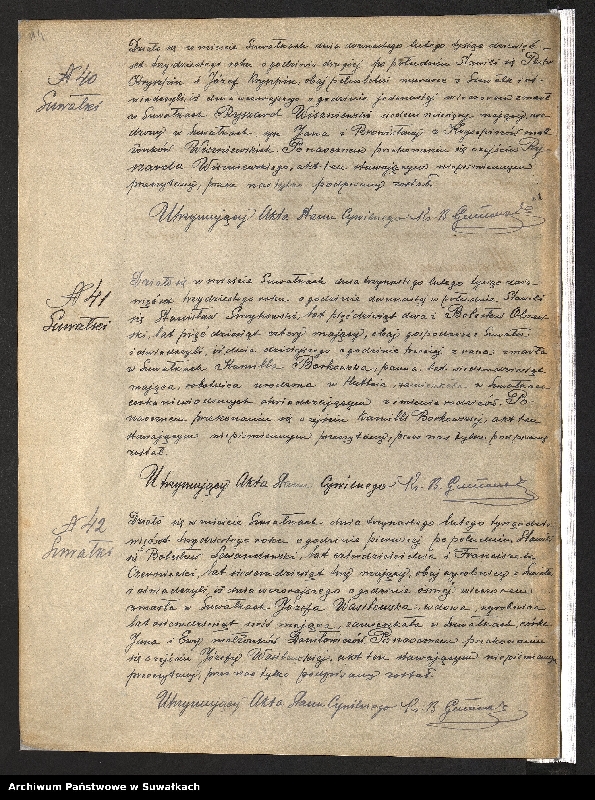 № 40
Suwałki
Działo się w mieście Suwałkach dnia dwunastego lutego tysiąc dziewięć-
set trzydziestego roku o godzinie drugiej po południu. Stawili się Piotr
i Józef obaj pełnoletni z Suwałk i oś-
wiadczyli, iż dnia wczorajszego o godzinie jedenastej wieczorem zmarł
w Suwałkach Ryszard Wiszniewski siedem miesięcy mający, uro-
dzony w Suwałkach, syn Jana i Bronisławy z mał-
żonków Wiszniewskich. Po naocznem przekonaniu się o zejściu Ry-
szarda Wiszniewskiego, akt ten stawającym niepiśmiennym
przeczytany, przez nas tylko podpisany został.
Utrzymujący Akta Stanu Cywilnego Ks. B.
№ 41
Suwałki
Działo się w mieście Suwałkach dnia trzynastego lutego tysiąc dzie-
więćset trzydziestego roku o godzinie dwunastej w południe. Stawili
się Stanisław lat pięćdziesiąt dwa i Bolesław
lat pięćdziesiąt cztery mający, obaj gospodarze Suwałk
i oświadczyli, iż dnia dzisiejszego o godzinie trzeciej z rana zmarła
w Suwałkach Kamilla Borkowska, panna, lat siedemdziesiąt
mająca, robotnica urodzona w zamieszkała w Suwałkach
córka niewiadomych oświadczającym z imienia rodziców. Po
naocznem przekonaniu się o zejściu Kamilli Borkowskiej, akt ten
stawającym niepiśmiennym przeczytany, przez nas tylko podpisany
został.
Utrzymujący Akta Stanu Cywilnego Ks. B.
№ 42
Suwałki
Działo się w mieście Suwałkach dnia trzynastego lutego tysiąc dzie-
więćset trzydziestego roku o godzinie pierwszej po południu. Stawili
się Bolesław Lewandowski, lat czterdzieści i Franciszek
Czerniecki, lat siedemdziesiąt trzy mający, obaj wyrobnicy z Suwałk
i oświadczyli, iż dnia wczorajszego o godzinie ósmej wieczorem
zmarła w Suwałkach Józefa Wasilewska, wdowa, wyrobnica
lat osiemdziesiąt sześć mająca, zamieszkała w Suwałkach córka
Jana i Ewy małżonków Po naocznem przekonaniu
się o zejściu Józefy Wasilewskiej, akt ten stawającym niepiśmiennym
przeczytany, przez nas tylko podpisany został.
Utrzymujący Akta Stanu Cywilnego Ks. B.
Archiwum Państwowe w Suwałkach